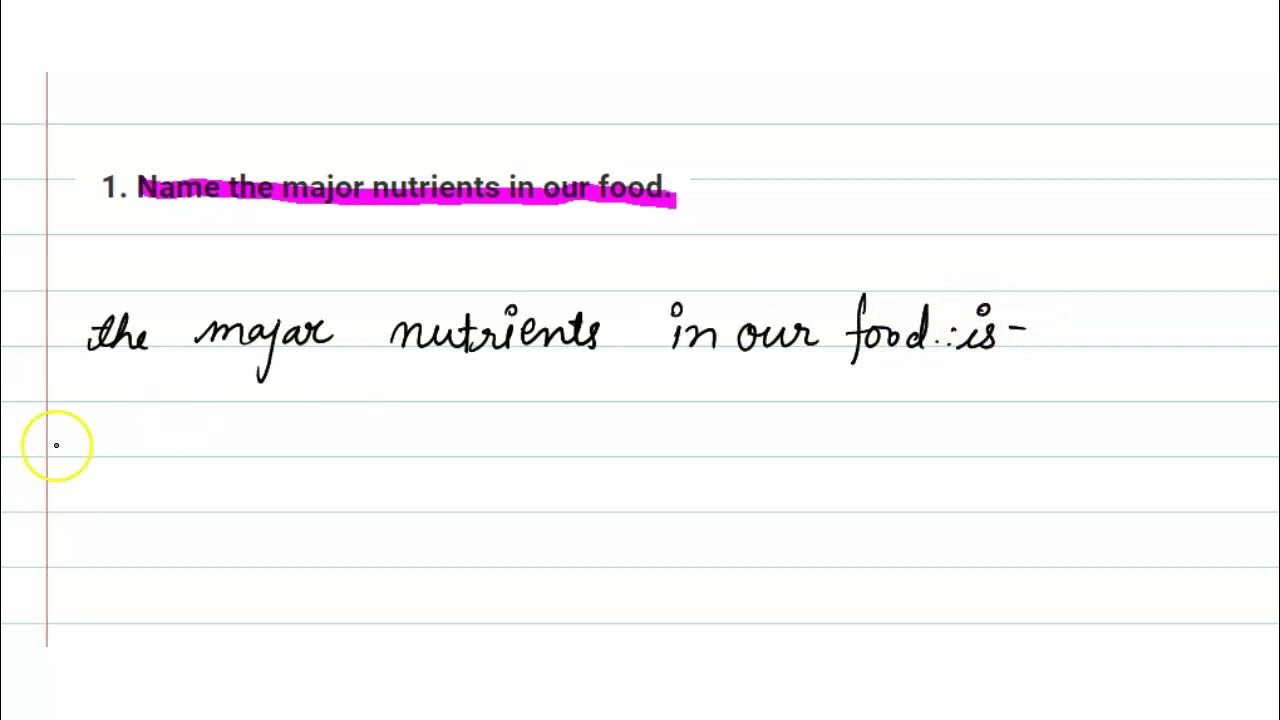 1. Name the major nutrients in our food.
the major nutrients in our food.. is -